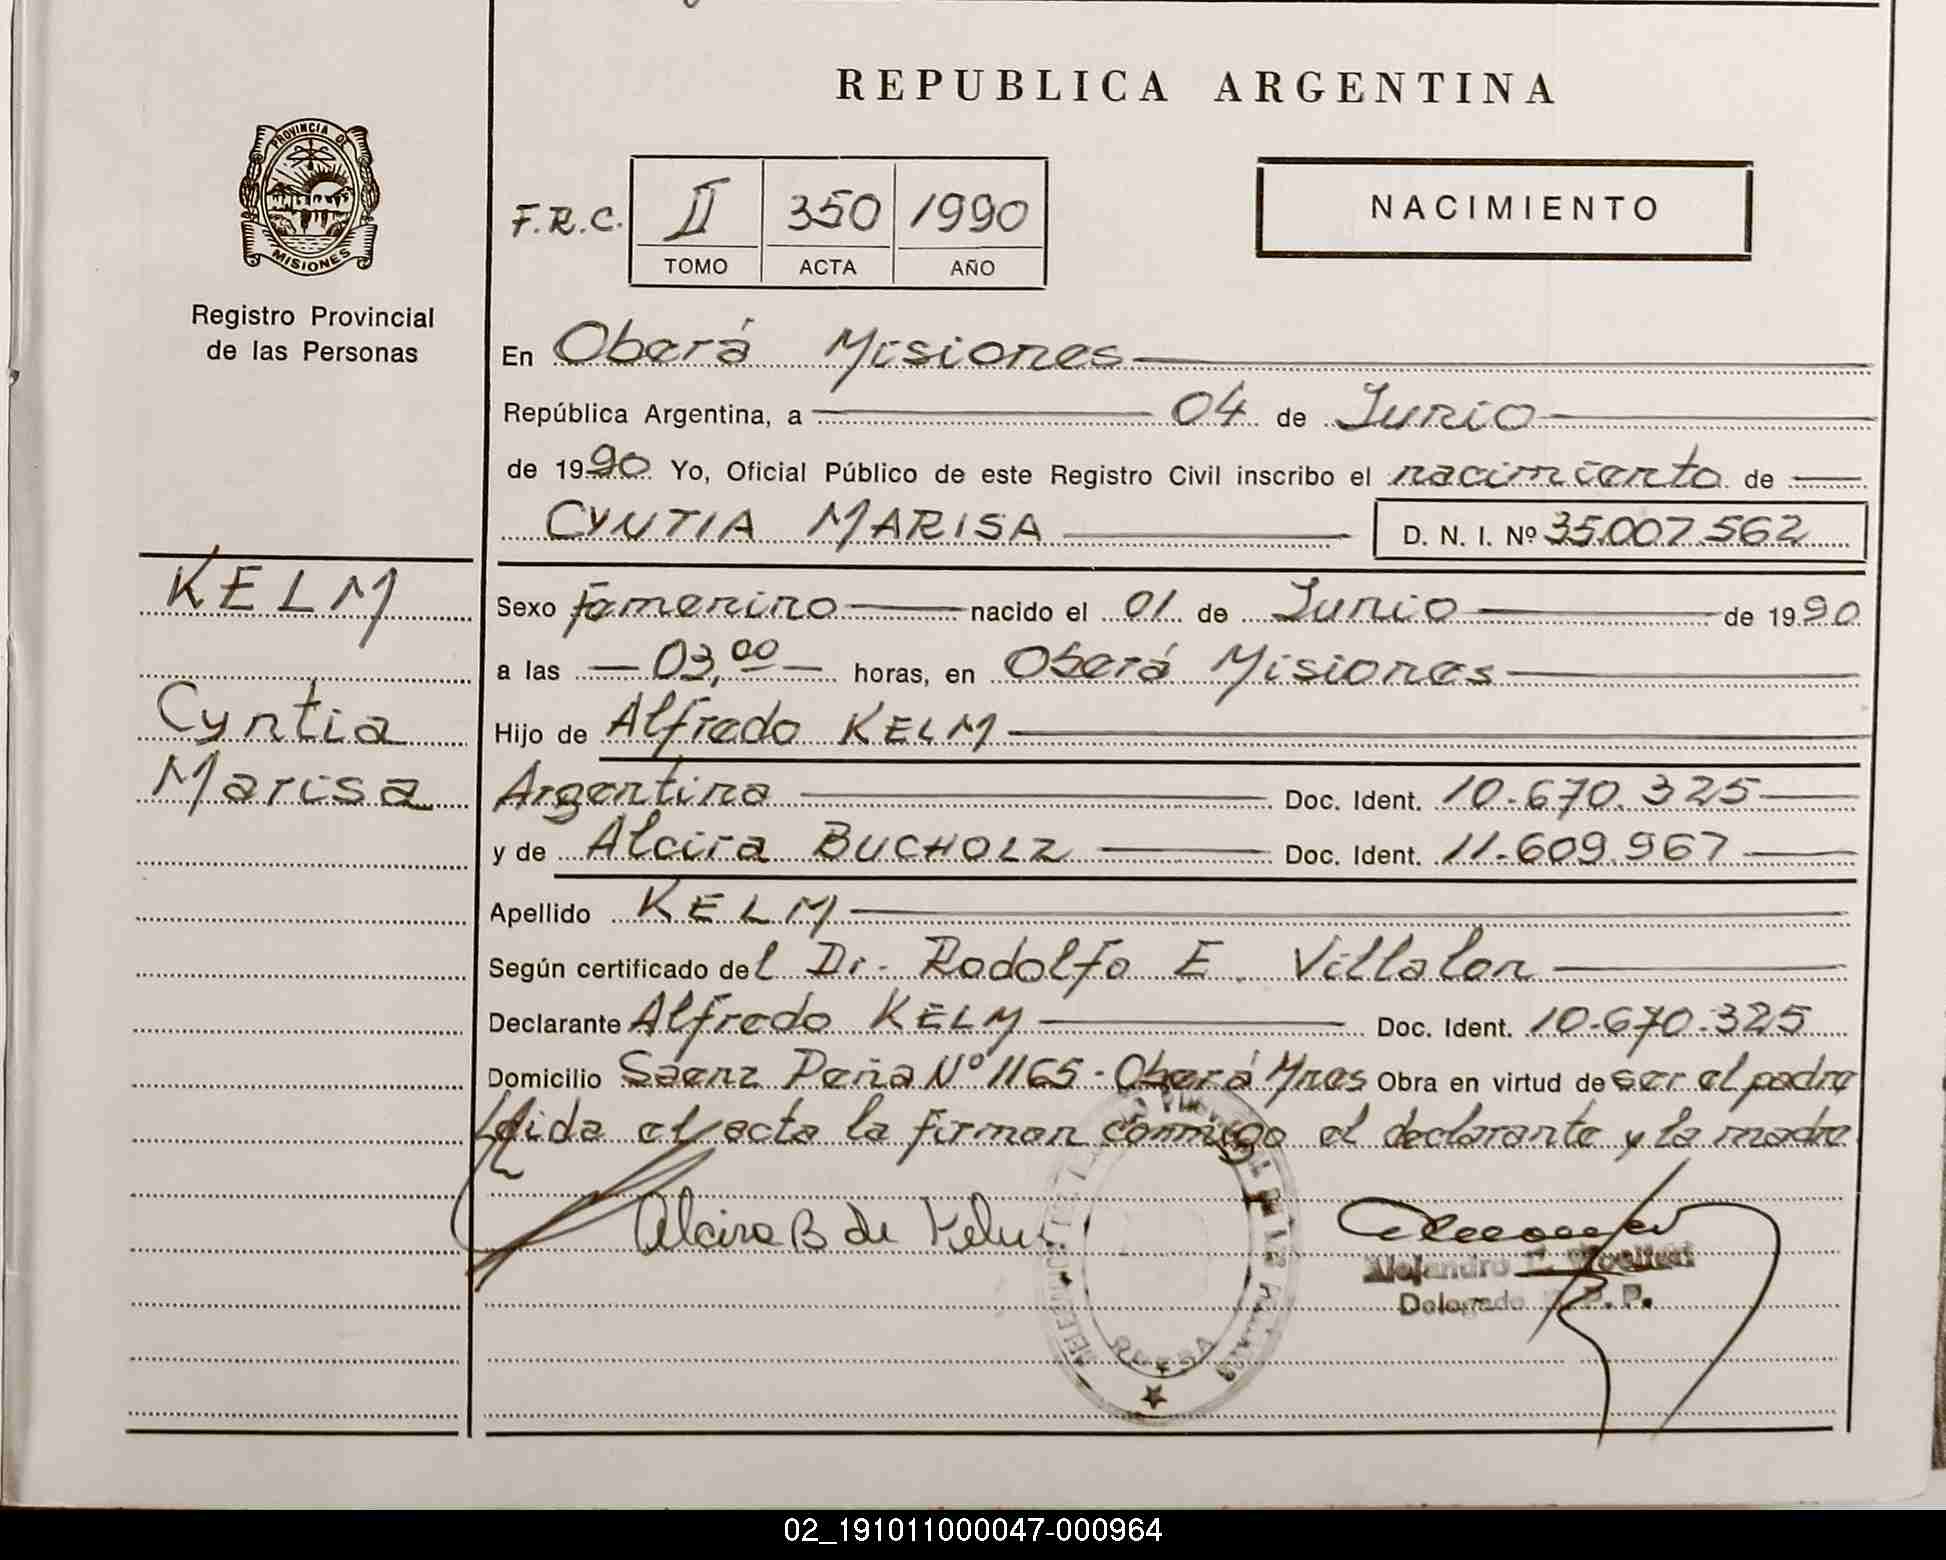 REPUBLICA ARGENTINA
PROVINCIA DE
MISIONES
Registro Provincial
de las Personas
F.R.C. II 350 1990
TOMO ACTA AÑO
NACIMIENTO
En Oberá Misiones
República Argentina, a 04 de Junio
de 1990 Yo, Oficial Público de este Registro Civil inscribo el nacimiento de
CYNTIA MARISA D. N. I. Nº 35.007.562
KELM
Cyntia
Marisa
Sexo femenino nacido el 01 de Junio de 1990
a las 03,00 horas, en Oberá Misiones
Hijo de Alfredo KELM
Argentina Doc. Ident. 10.670.325
y de Alcira BUCHOLZ Doc. Ident. 11.609.967
Apellido KELM
Según certificado del Dr. Rodolfo E. Villalon
Declarante Alfredo KELM Doc. Ident. 10.670.325
Domicilio Saenz Peña Nº 1165 - Oberá Mnes Obra en virtud de ser el padre
Leida el acta la firman conmigo el declarante y la madre
Alcira B de Kelm
Alejandro
Delegado
02_191011000047-000964